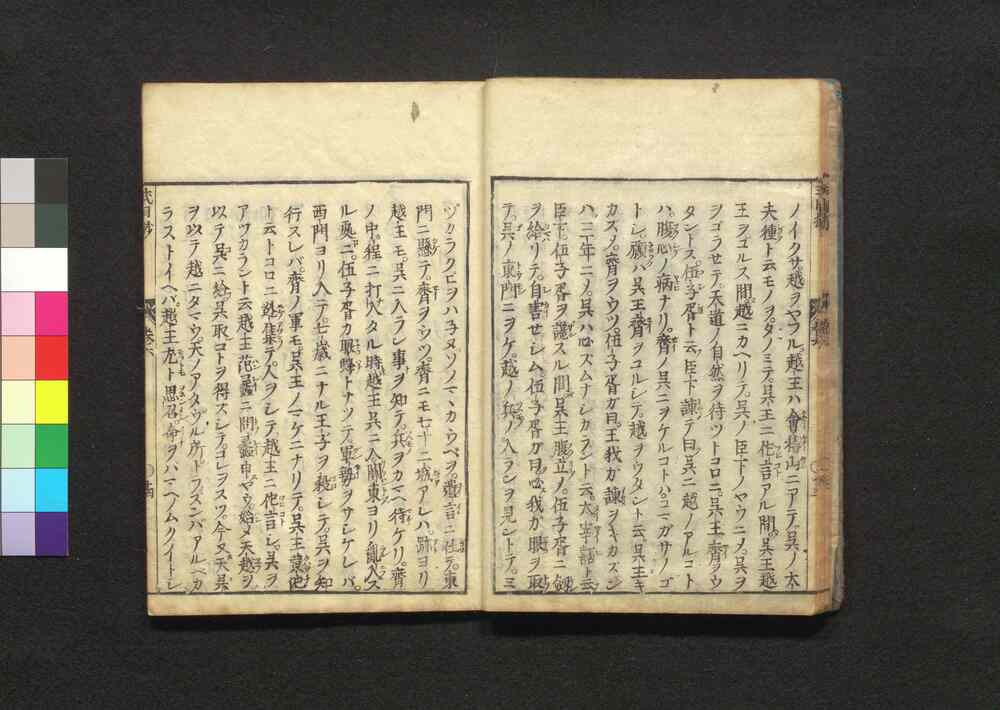 ノイクサ越ヲヤフル越王ハ會稽山ニアテ呉ノ太
夫種ト云モノヲタノミテ呉王ニ佗言アル間呉王越
王ヲユルス間越ニカヘリテ呉ノ臣下ノヤウニメ呉ヲ
ヲゴラせテ天道ノ自然ヲ待ツトコロニ呉王齊ヲウ
タントス伍子胥ト云臣下諫テ曰呉ニ越ノアルコト
ハ腹心ノ病ナリ齊ノ呉ニヲケルコトハコニガサノゴ
トレ願ハ呉王齊ヲユルレテ越ヲウタント云呉王キ
カスメ齊ヲウツ伍子胥カ曰王我カ諫ヲキカズン
ハ三年ニメ呉ハ心ズムナレカラント云太宰嚭ト云
臣下伍子胥ヲ讒スル間呉王腹立メ伍子胥ニ劔
ヲ給リテ自害せレム伍子胥カ曰心我カ眼ヲ取
テ呉ノ東門ニヲケ越ノ兵ノ入ランヲ見ントテミ
ヅカラクビヲハ子タソノマヽカウベヲ遺言ニ任テ東
門ニ懸テ齊ヲウツ齊ニモ七十二城アレハ跡ヨリ
越王モ呉ニ入ラン事ヲ知テ兵ヲカマヘ待ケリ齊
ノ中程ニ打入タル時越王呉ニ入關東ヨリ亂入ス
ル処ニ伍子胥カ眼降トナツテ軍勢ヲサレケレバ
西門ヨリ入テ七歳ニナル王子ヲ殺レテ呉ヲ知
行スレバ齊ノ軍モ呉王ノマケニナリテ呉王
ト云トコロニ人ヲレテ越王ニ佗言レ呉ヲ
アツカラント云越王范蠡ニ問蠡申ヤウ始メ天越ヲ
以テ呉ニ給呉取コトヲ得スレテコレヲスツ今又天呉
ヲ以テ越ニタマウ天ノアタウル所トラズンバアルヘカ
ラストイヘバ越王尤ト思召命ヲハマヘノムクイトレ
巻六